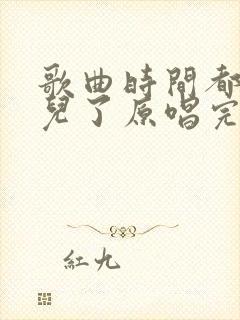 歌曲時間都
兒了原唱完
紅九